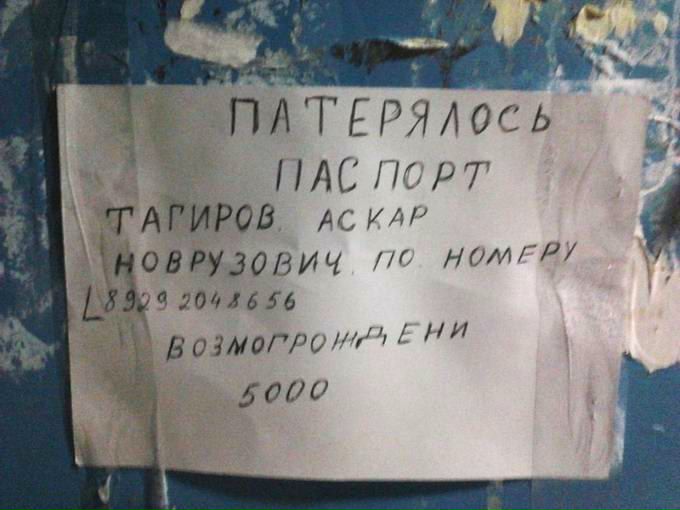 ПАТЕРЯЛОСЬ
ПАСПОРТ
ТАГИРОВ. АСКАР
НОВРУЗОВИЧ. ПО. НОМЕРУ
89292048656
ВОЗМОГРОЖДЕНИ
5000